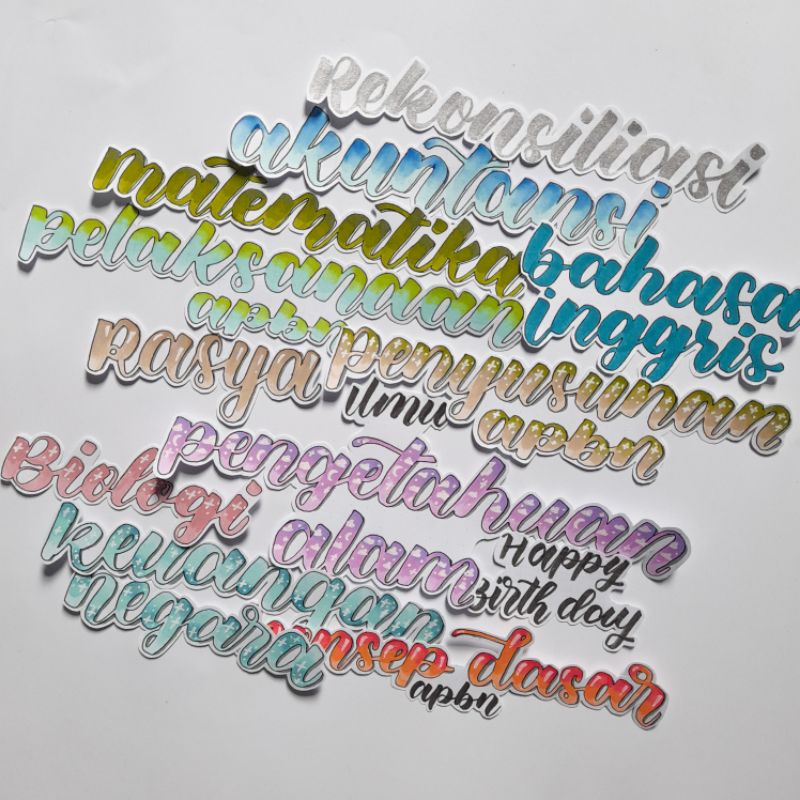 Rekonsiliasi
akuntansi
matematika
bahasa
inggris
pelaksanaan
apbn
Rasya
penyusunan
apbn
ilmu
pengetahuan
alam
Biologi
Happy
Birth day
keuangan
negara
konsep dasar
apbn